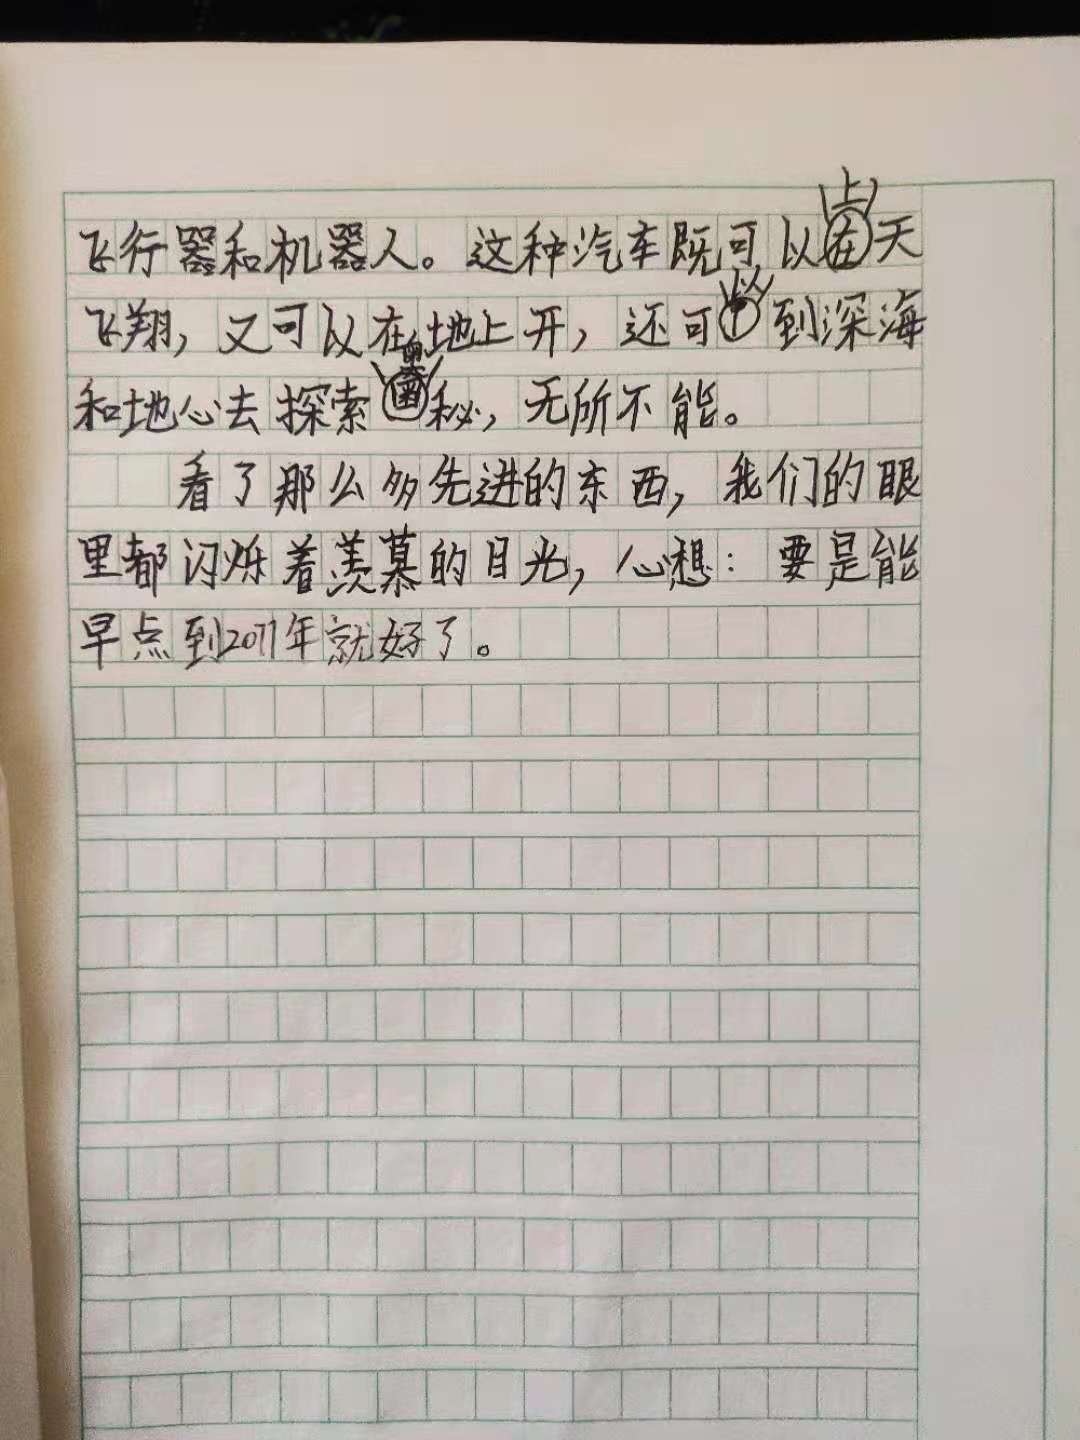 飞行器和机器人。这种汽车既可以上天
飞翔，又可以在地上开，还可以到深海
和地心去探索奥秘，无所不能。
看了那么多先进的东西，我们的眼
里都闪烁着羡慕的目光，心想：要是能
早点到2077年就好了。